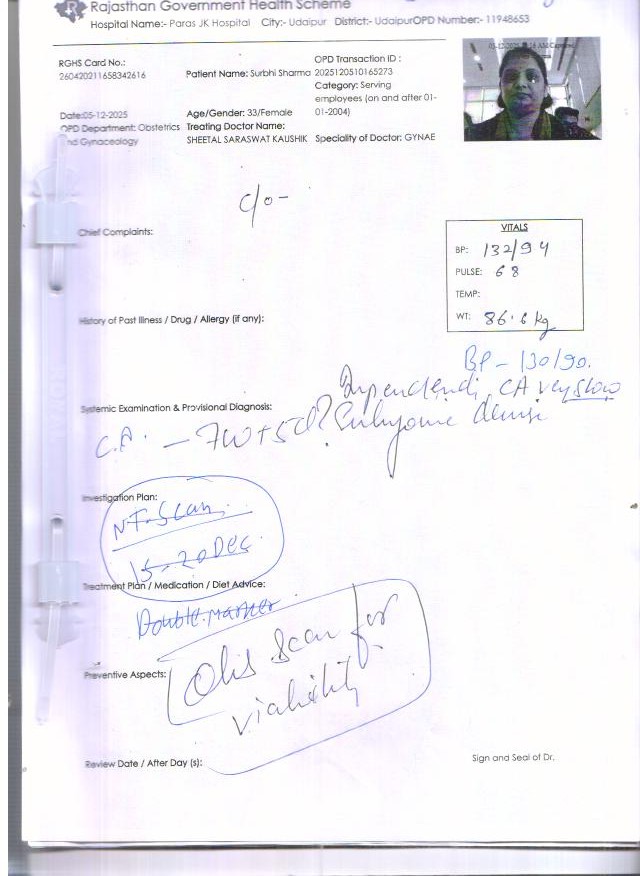 Rajasthan Government Health Scheme
Hospital Name:- Paras JK Hospital City:- Udaipur District:- UdaipurOPD Number:- 11948653
RGHS Card No.:
260420211658342616
Patient Name: Surbhi Sharma
OPD Transaction ID :
2025120510165273
Category: Serving
employees (on and after 01-
01-2004)
Date:05-12-2025
Age/Gender: 33/Female
OPD Department: Obstetrics
nd Gynaecology
Treating Doctor Name:
SHEETAL SARASWAT KAUSHIK
Speciality of Doctor: GYNAE
c/o -
Chief Complaints:
VITALS
BP: 132/94
PULSE: 68
TEMP:
WT: 86.6 kg
History of Past Illness / Drug / Allergy (if any):
BP - 130/90.
CA very slow
Systemic Examination & Provisional Diagnosis:
- 7W+5d ? demise
Investigation Plan:
NT-Scan
15-20 Dec
Treatment Plan / Medication / Diet Advice:
Double marker
Preventive Aspects:
Scan for
viability
Review Date / After Day (s):
Sign and Seal of Dr.